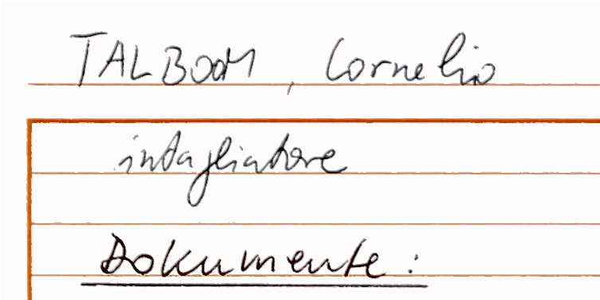 TALBOOM, Cornelio
intagliatore
Dokumente: